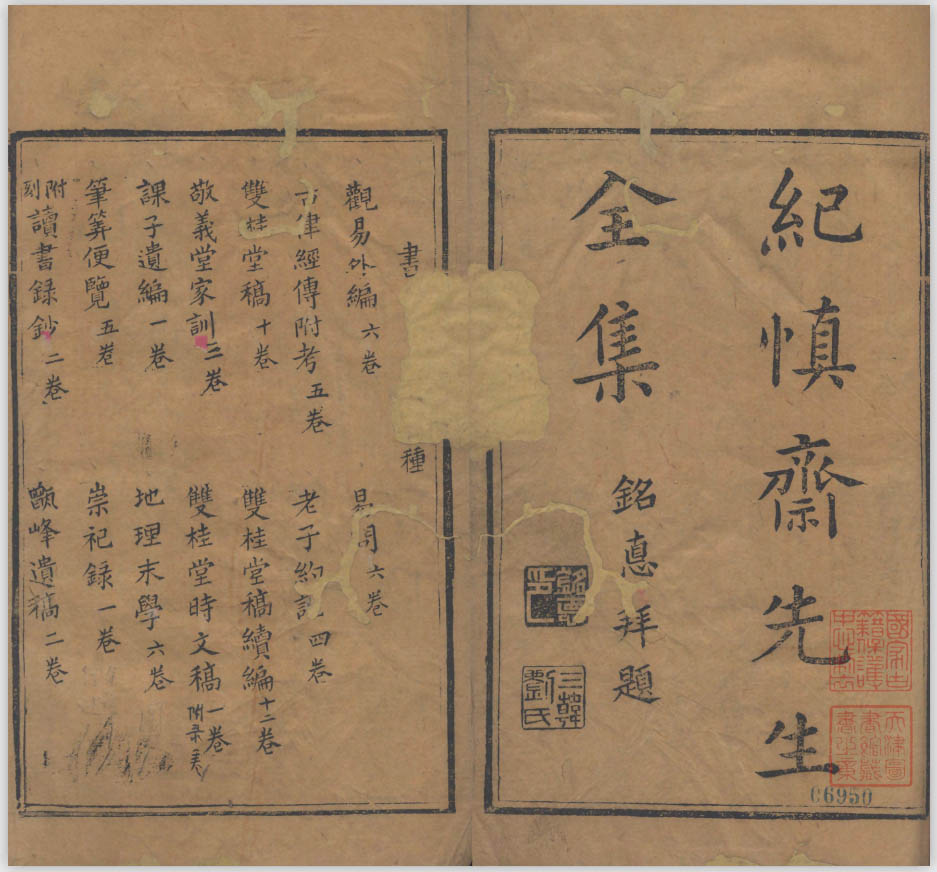 紀慎齋先生
全集
銘惪拜題
三韓劉氏
C6950
書 種
觀易外編六卷 易問六卷
古律經傳附考五卷 老子約說四卷
雙桂堂稿十卷 雙桂堂稿續編十二卷
敬義堂家訓三卷 雙桂堂時文稿一卷
課子遺編一卷 地理末學六卷
筆算便覽五卷 崇祀録一卷
附刻讀書録鈔二卷 甑峰遺稿二卷